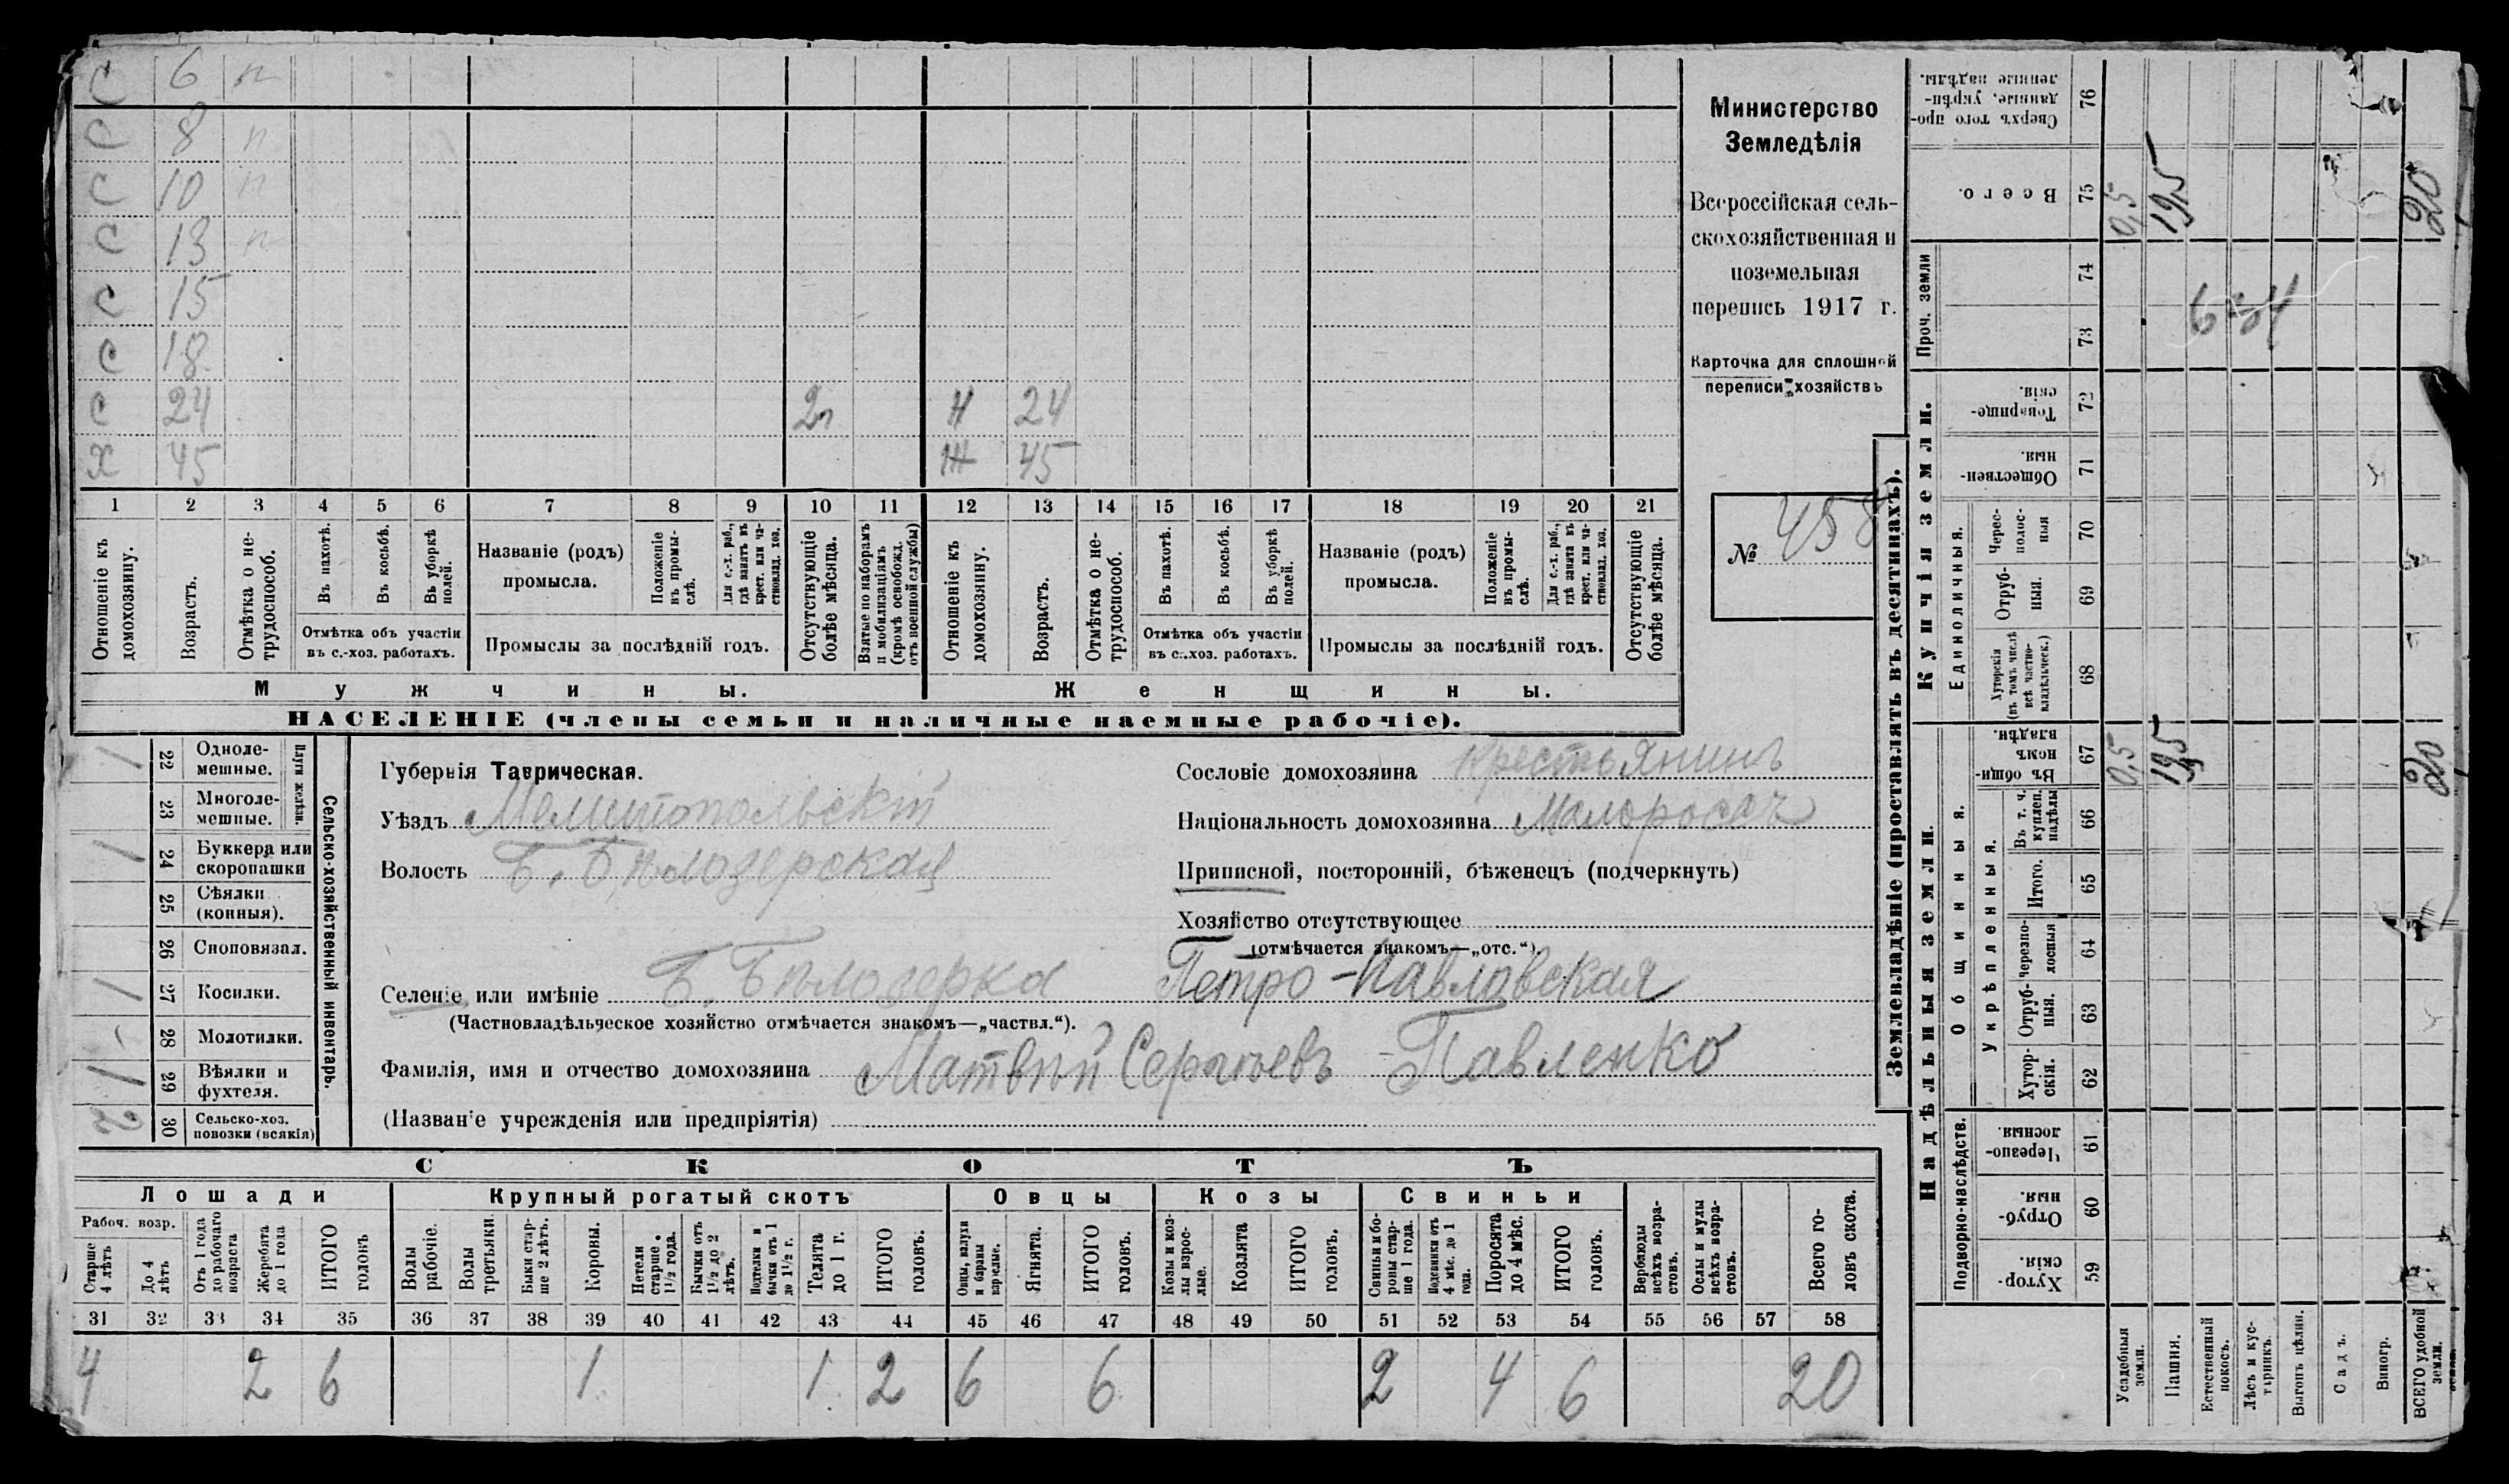 С 6 п
С 8 п
С 10 п
С 13 п
С 15
С 18
С 24 2 Н 24
Х 45 Ж 45
1 2 3 4 5 6 7 8 9 10 11 12 13 14 15 16 17 18 19 20 21
Отношеніе къ домохозяину.
Возрастъ.
Отмѣтка о не-трудоспособ.
Въ пахотѣ.
Въ косьбѣ.
Въ уборкѣ полей.
Отмѣтка объ участіи
въ с.-хоз. работахъ.
Названіе (родъ)
промысла.
Положеніе въ промы-слѣ.
Для с.-х. раб., гдѣ занятъ въ крест. или ча-стновлад. хоз.
Промыслы за послѣдній годъ.
Отсутствующіе болѣе мѣсяца.
Взятые по наборамъ и мобилизаціямъ (кромѣ освобожд. отъ военной службы)
Отношеніе къ домохозяину.
Возрастъ.
Отмѣтка о не-трудоспособ.
Въ пахотѣ.
Въ косьбѣ.
Въ уборкѣ полей.
Отмѣтка объ участіи
въ с.-хоз. работахъ.
Названіе (родъ)
промысла.
Положеніе въ промы-слѣ.
Для с.-х. раб., гдѣ занята въ крест. или ча-стновлад. хоз.
Промыслы за послѣдній годъ.
Отсутствующіе болѣе мѣсяца.
Мужчины. Женщины.
НАСЕЛЕНІЕ (члены семьи и наличные наемные рабочіе).
Министерство
Земледѣлія
Всероссійская сель-
скохозяйственная и
поземельная
перепись 1917 г.
Карточка для сплошной
переписи хозяйствъ
№ 458
1 22 Одноле-мешные.
23 Многоле-мешные.
Плуги желѣзн.
1 24 Буккера или скоропашки
25 Сѣялки (конныя).
26 Сноповязал.
1 27 Косилки.
28 Молотилки.
1 29 Вѣялки и фухтеля.
2 30 Сельско-хоз. повозки (всякія)
Сельско-хозяйственный инвентарь.
Губернія Таврическая.
Уѣздъ Мелитопольскій
Волость Б. Бѣлозерская
Селеніе или имѣніе Б. Бѣлозерка Петро-Павловская
(Частновладѣльческое хозяйство отмѣчается знакомъ—„частвл.“).
Фамилія, имя и отчество домохозяина Матвѣй Сергѣевъ Павленко
(Названіе учрежденія или предпріятія)
Сословіе домохозяина Крестьянинъ
Національность домохозяина Малоросъ
Приписной, посторонній, бѣженецъ (подчеркнуть)
Хозяйство отсутствующее
(отмѣчается знакомъ—„отс.“).
СКОТЪ
Лошади Крупный рогатый скотъ Овцы Козы Свиньи
Рабоч. возр.
Старше 4 лѣтъ
До 4 лѣтъ
Отъ 1 года до рабочаго возраста
Жеребята до 1 года
ИТОГО головъ
Волы рабочіе.
Волы третьяки.
Быки стар-ше 2 лѣтъ.
Коровы.
Нетели старше 1½ года.
Бычки отъ 1½ до 2 лѣтъ.
Подтелки и бычки отъ 1 до 1½ г.
Телята до 1 г.
ИТОГО головъ.
Овцы, валухи и бараны взрослые.
Ягнята.
ИТОГО головъ.
Козы и коз-лы взрос-лые.
Козлята
ИТОГО головъ.
Свиньи и бо-ровы стар-ше 1 года.
Подсвинки отъ 4 мѣс. до 1 года.
Поросята до 4 мѣс.
ИТОГО головъ.
Верблюды всѣхъ возра-стовъ.
Ослы и мулы всѣхъ возра-стовъ.
Всего го-ловъ скота.
31 32 33 34 35 36 37 38 39 40 41 42 43 44 45 46 47 48 49 50 51 52 53 54 55 56 57 58
4 2 6 1 1 2 6 6 2 4 6 20
Землевладѣніе (проставлять въ десятинахъ).
Надѣльныя земли. Купчія земли. Проч. земли
Подворно-наслѣдств.
Общинныя.
Укрѣпленныя.
Единоличныя.
Хутор-скія. 59
Отруб-ныя. 60
Черезпо-лосныя. 61
Хутор-скія. 62
Отруб-ныя. 63
Черезпо-лосныя 64
Итого. 65
Въ т. ч. куплен. надѣлы 66
Въ общи-номъ владѣн. 67
Хуторскія (въ томъ числѣ всѣ частно-владѣльческ.) 68
Отруб-ныя. 69
Черес-полос-ныя 70
Обществен-ныя. 71
Товарище-скія. 72
73
74
Всего. 75
Сверхъ того про-данные, укрѣп-ленные надѣлы. 76
Усадебныя земли. 0,5 0,5
Пашня. 19,5 19,5
Естественный покосъ.
Лѣсъ и кус-тарникъ.
Выгонъ цѣлин.
Садъ.
Виногр.
ВСЕГО удобной земли. 20 20